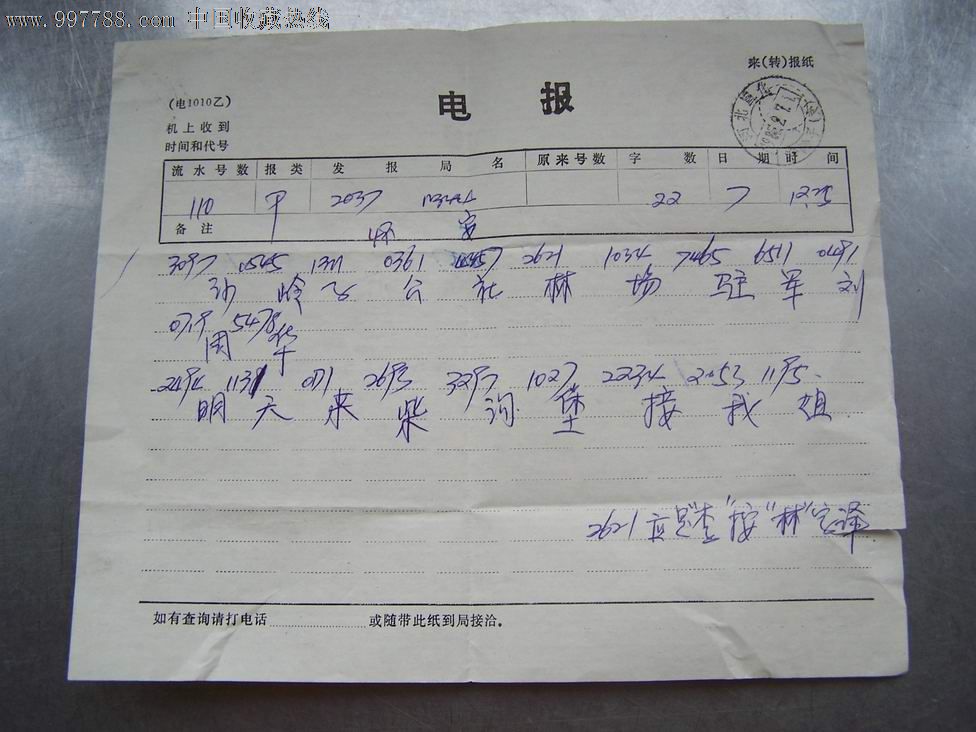 www.997788.com 中国收藏热线
来(转)报纸
(电1010乙)
电报
机上收到
时间和代号
流水号数 报类 发报局名 原来号数 字数 日期 时间
110 2037 22 7 1225
备注 怀安
3097 0545 0361 2621 1034 7465 6511 0491
沙岭子公社林场驻军刘
0719 5478
国华
2494 1131 2693 3297 1027 2234 2053 1195
明天来柴沟堡接我姐
2621应是"查"按"林"字译
如有查询请打电话 或随带此纸到局接洽。